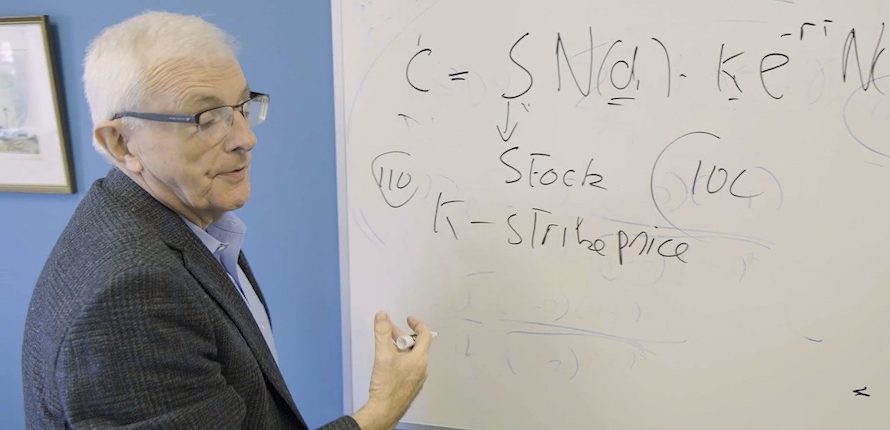 C = S N(d₁) - K e^-rT N(
Stock
110
100
K - Strike price